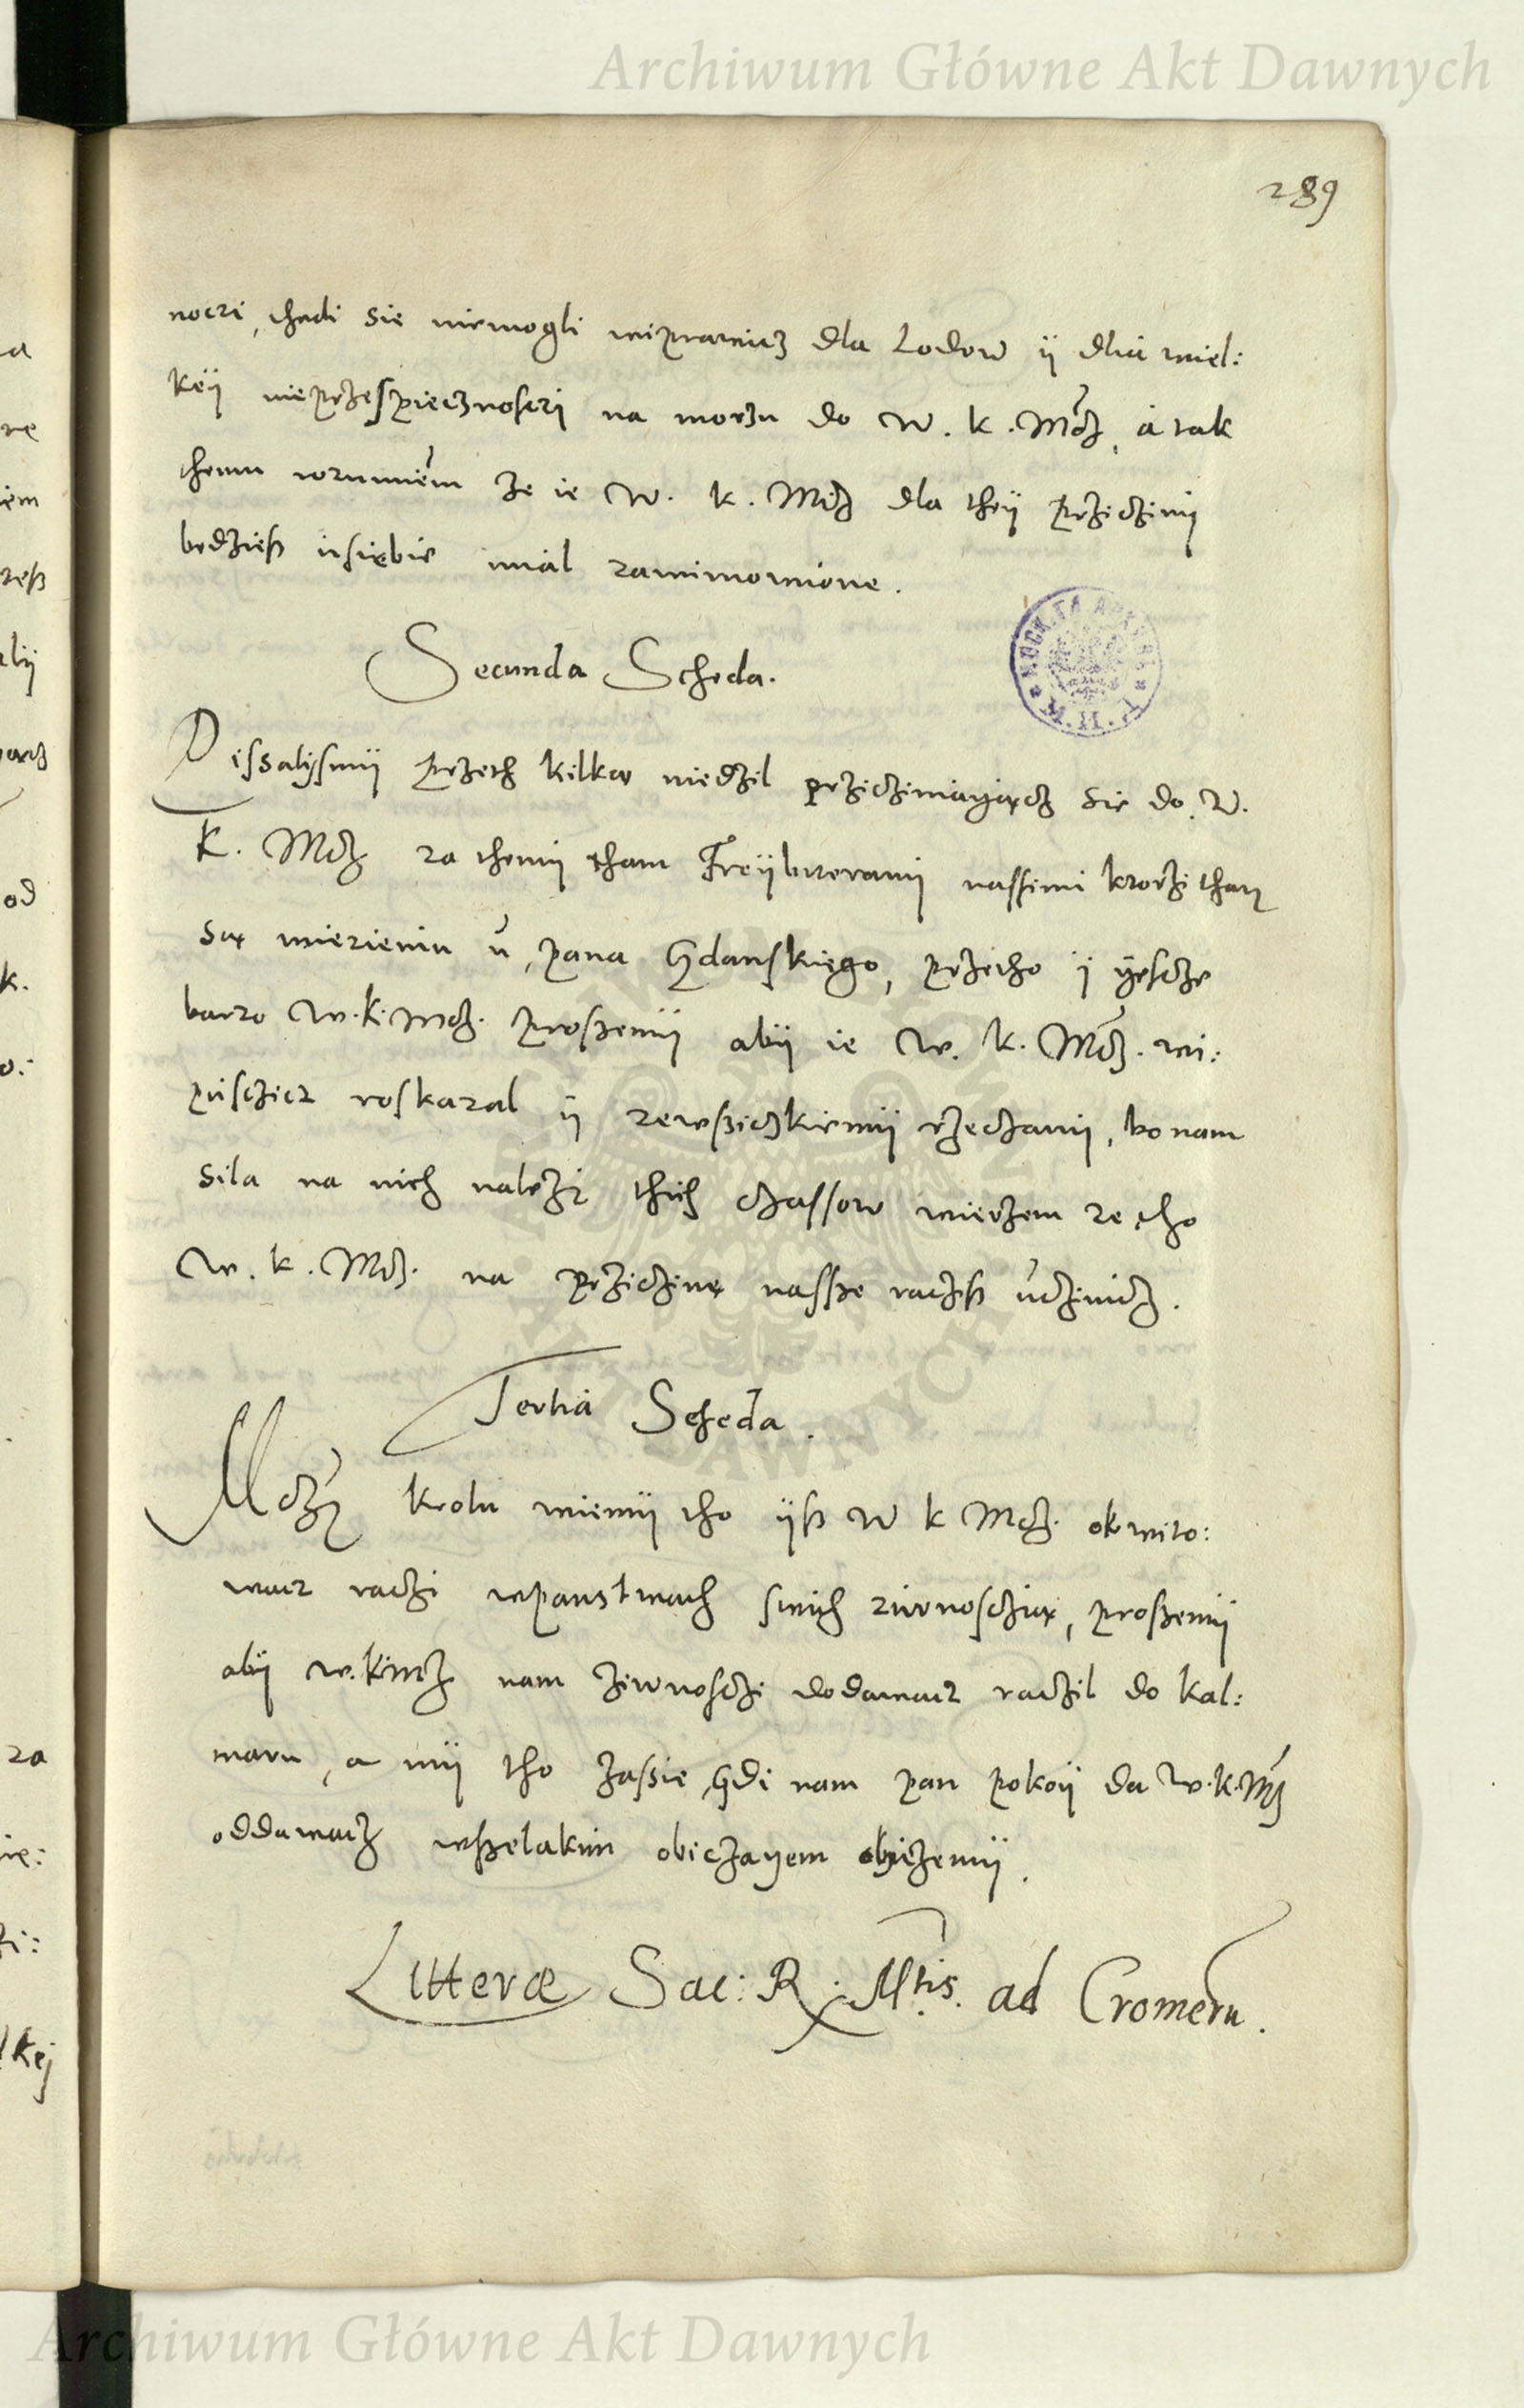 Archiwum Główne Akt Dawnych
289
noczi, thedi sie niemogli wiprawicz dla Lodow ÿ dlia wiel:
kÿeÿ nieprzespiecznosczi na morzu do W. K. Mczi, a tak
themu rozumiem ze ie W. K. Mcz dla theÿ prziczinÿ
bedziesz usiebie mial zawimowione.
Secunda Scheda.
Pissalÿsmÿ przeth kilka niedzil prziczinÿaiącz sie do W.
K. Mcz za themÿ tham Freÿbiterami nassimi ktorzi tham
są wiezieniu u pana Gdanskiego, przetho ÿ ÿescze
barzo W. K. Mcz. proszemÿ abÿ ie W. K. Mcz. wi:
pusczicz roskazal ÿ zewszitzkiemÿ rzeczamÿ, bo nam
sila na nich nalezi thich czassow wierzem ze tho
W. K. Mcz. na prziczinę nassze raczisz uczinicz.
Tertia Scheda.
Mczÿ krolu wiemÿ tho ÿsz W K Mcz. obwito:
wacz raczi wpanstwach swich ziwnoscią, proszemÿ
abÿ W. K Mcz nam ziwnosczi dodawacz raczil do Kal:
maru, a mÿ tho zassie, gdi nam pan pokoÿ da W. K. Mcz
oddawacz wszelakim obiczaÿem obiczemÿ.
Litteræ Sac: R. Mtis. ad Cromerũ.
Archiwum Główne Akt Dawnych